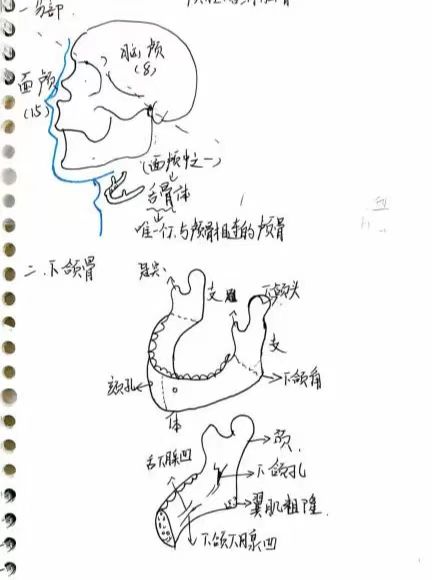 一.分部
脑颅
(8)
面颅
(15)
(面颅中之一)
舌骨体
唯一不与颅骨相连的颅骨
二.下颌骨
支
下颌头
支
颏孔
下颌角
体
舌下腺凹
颈
下颌孔
翼肌粗隆
下颌下腺凹